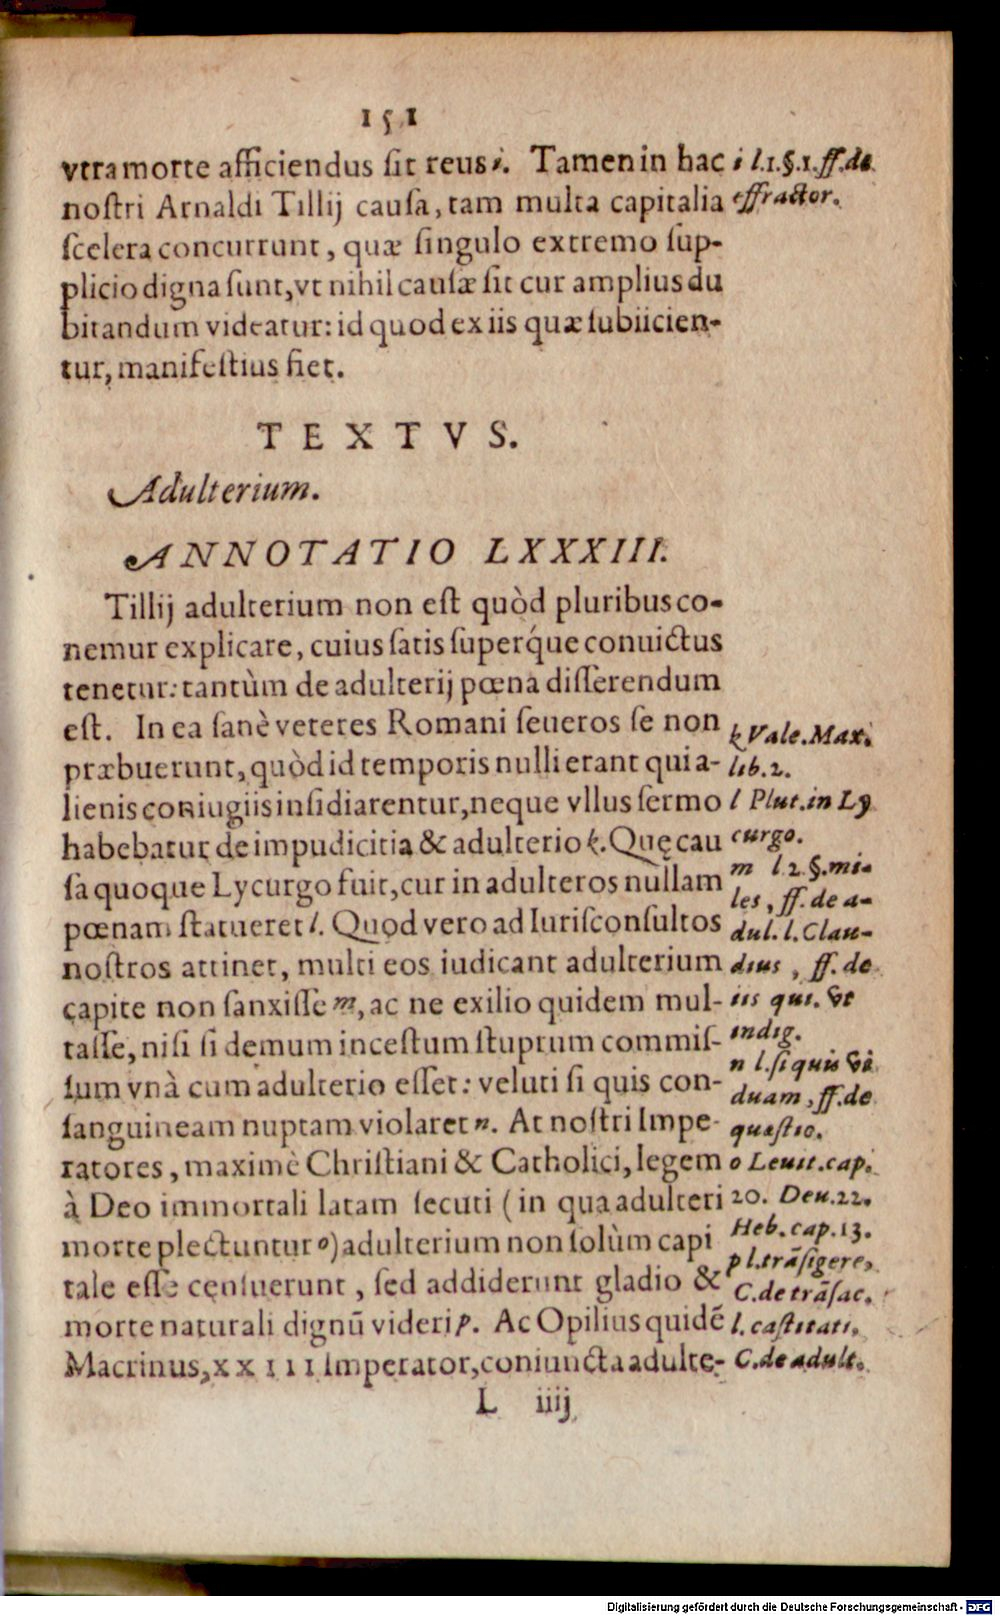 151
vtra morte afficiendus sit reus i. Tamen in hac
nostri Arnaldi Tillij causa, tam multa capitalia
scelera concurrunt, quæ singulo extremo sup-
plicio digna sunt, vt nihil causæ sit cur amplius du
bitandum videatur: id quod ex iis quæ subiicien-
tur, manifestius fiet.
i l.1.§.1.ff.de
effractor.
TEXTVS.
Adulterium.
ANNOTATIO LXXXIII.
Tillij adulterium non est quòd pluribus co-
nemur explicare, cuius satis superq́ue conuictus
tenetur: tantùm de adulterij pœna disserendum
est. In ea sanè veteres Romani seueros se non
præbuerunt, quòd id temporis nulli erant qui a-
lienis coniugiis insidiarentur, neque vllus sermo
habebatur de impudicitia & adulterio k. Quę cau
sa quoque Lycurgo fuit, cur in adulteros nullam
pœnam statueret l. Quod vero ad Iurisconsultos
nostros attinet, multi eos iudicant adulterium
capite non sanxisse m, ac ne exilio quidem mul-
tasse, nisi si demum incestum stuprum commis-
sum vnà cum adulterio esset: veluti si quis con-
sanguineam nuptam violaret n. At nostri Impe-
ratores, maximè Christiani & Catholici, legem
à Deo immortali latam secuti (in qua adulteri
morte plectuntur o) adulterium non solùm capi
tale esse censuerunt, sed addiderunt gladio &
morte naturali dignũ videri p. Ac Opilius quidẽ
Macrinus, XXIII Imperator, coniuncta adulte-
k Vale. Max.
lib. 2.
l Plut. in Ly
curgo.
m l. 2. §. mi-
les, ff. de a-
dul. l. Clau-
dius, ff. de
iis qui. vt
indig.
n l. si quis vi
duam, ff. de
quæstio.
o Leuit. cap.
20. Deu. 22.
Heb. cap. 13.
p l. trãsigere,
C. de trãsac.
l. castitati,
C. de adult.
L iiij
Digitalisierung gefördert durch die Deutsche Forschungsgemeinschaft - DFG